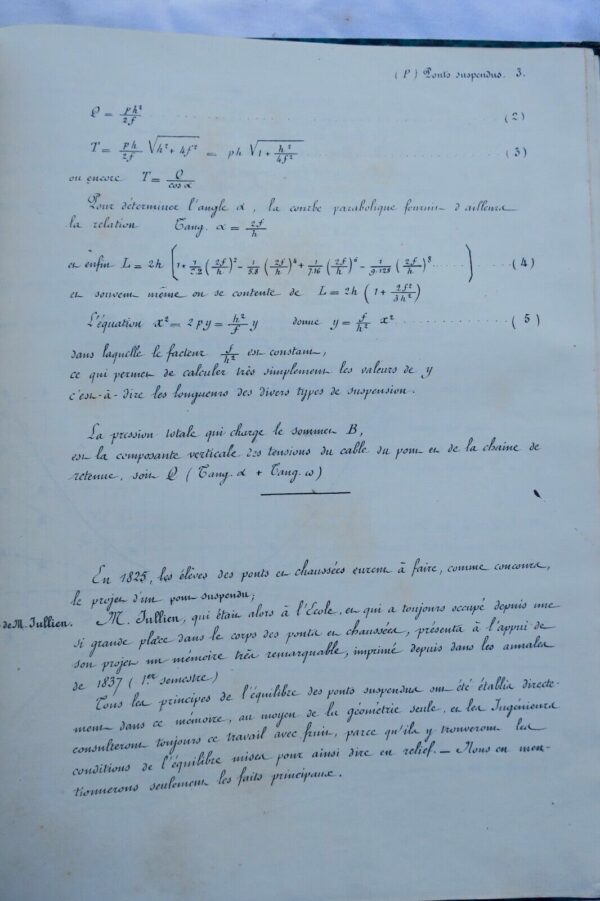 (P) Ponts suspendus. 3.
Q = ph²/2f (2)
T = ph/2f √(h² + 4f²) = ph √(1 + h²/4f²) (3)
ou encore T = Q/cos α
Pour déterminer l'angle α, la courbe parabolique fournit d'ailleurs
la relation Tang. α = 2f/h
et enfin L = 2h [1 + 1/2.3 (2f/h)² - 1/5.8 (2f/h)⁴ + 1/7.16 (2f/h)⁶ - 5/9.128 (2f/h)⁸ ......] (4)
et souvent même on se contente de L = 2h (1 + 2f²/3h²)
L'équation x² = 2py = h²/f y donne y = f/h² x² (5)
dans laquelle le facteur f/h² est constant,
ce qui permet de calculer très simplement les valeurs de y
c'est-à-dire les longueurs des divers types de suspension.
La pression totale qui charge le sommet B,
est la composante verticale des tensions du cable du pont et de la chaîne de
retenue, soit Q (Tang. α + Tang. ω)
En 1825, les élèves des ponts et chaussées eurent à faire, comme concours,
le projet d'un pont suspendu;
de M. Jullien.
M. Jullien, qui était alors à l'Ecole, et qui a toujours occupé depuis une
si grande place dans le corps des ponts et chaussées, présenta à l'appui de
son projet un mémoire très remarquable, imprimé depuis dans les annales
de 1837 (1er semestre)
Tous les principes de l'équilibre des ponts suspendus ont été établis directe-
ment dans ce mémoire, au moyen de la géométrie seule, et les Ingénieurs
consulteront toujours ce travail avec fruit, parce qu'ils y trouveront les
conditions de l'équilibre mises pour ainsi dire en relief. — Nous en men-
tionnerons seulement les faits principaux.